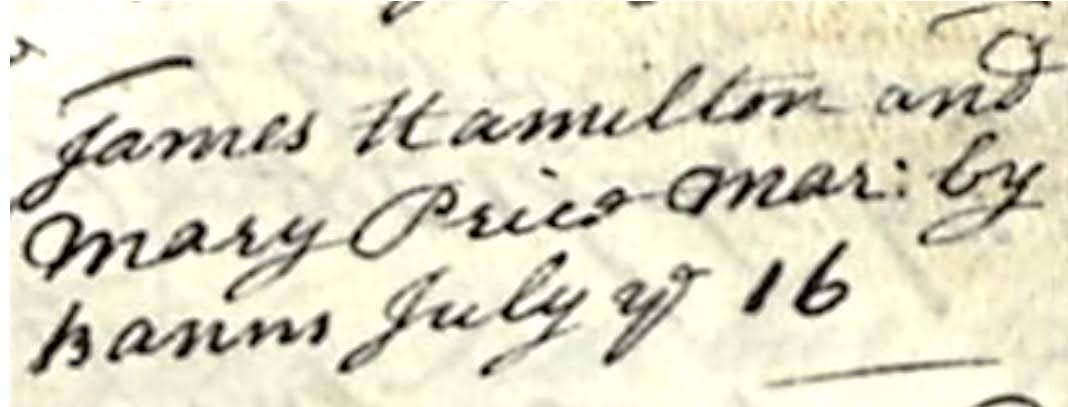 James Hamilton and
Mary Price mar: by
banns July ye 16